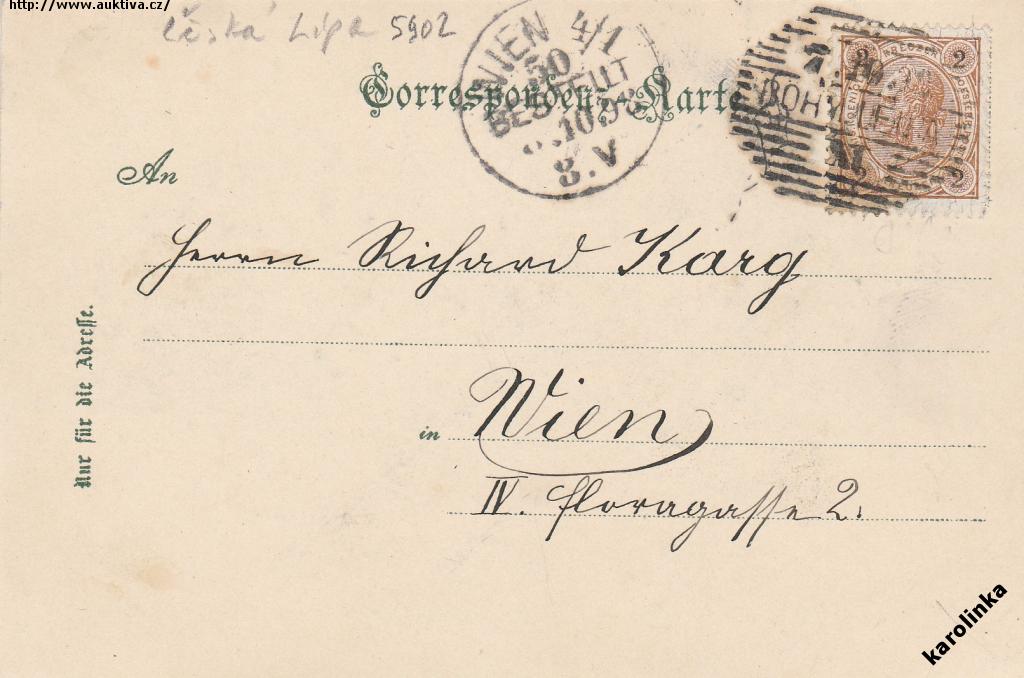 http://www.auktiva.cz/
česká Lípa 5902
Correspondenz-Karte
WIEN 4/1
50
BESTELLT
8.V
2 KREUZER 2
2
M
An
Herrn Richard Karg
in Wien
IV. Floragasse 2.
Nur für die Adresse.
karolinka